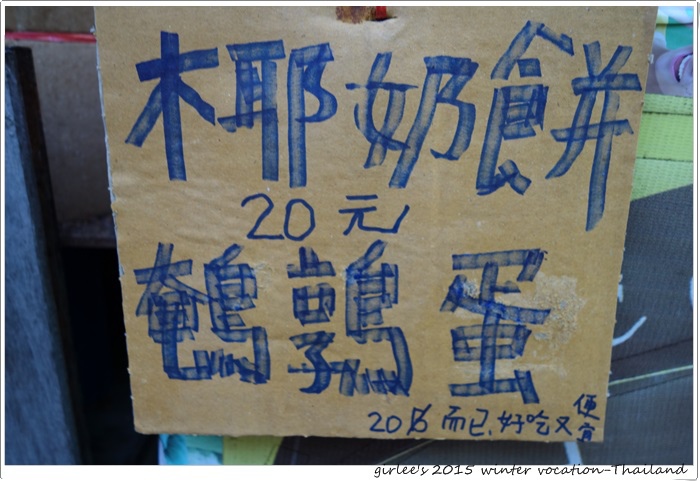 椰奶餅
20元
鵪鶉蛋
20฿而已,好吃又便宜
girlee's 2015 winter vocation-Thailand